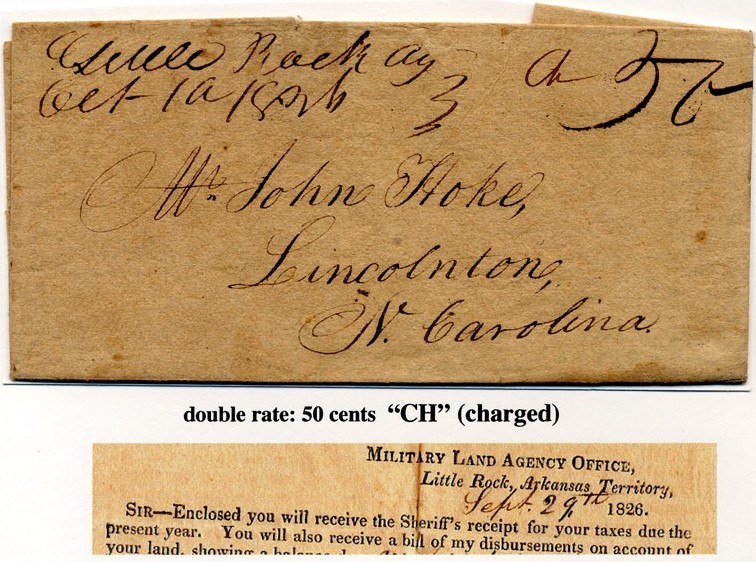 Little Rock Ay Ch 50
Oct 10 1826
Mr. John Hoke,
Lincolnton,
N. Carolina.
double rate: 50 cents “CH” (charged)
MILITARY LAND AGENCY OFFICE,
Little Rock, Arkansas Territory,
Sept. 29th 1826.
SIR—Enclosed you will receive the Sheriff's receipt for your taxes due the
present year. You will also receive a bill of my disbursements on account of
your land, showing a balance